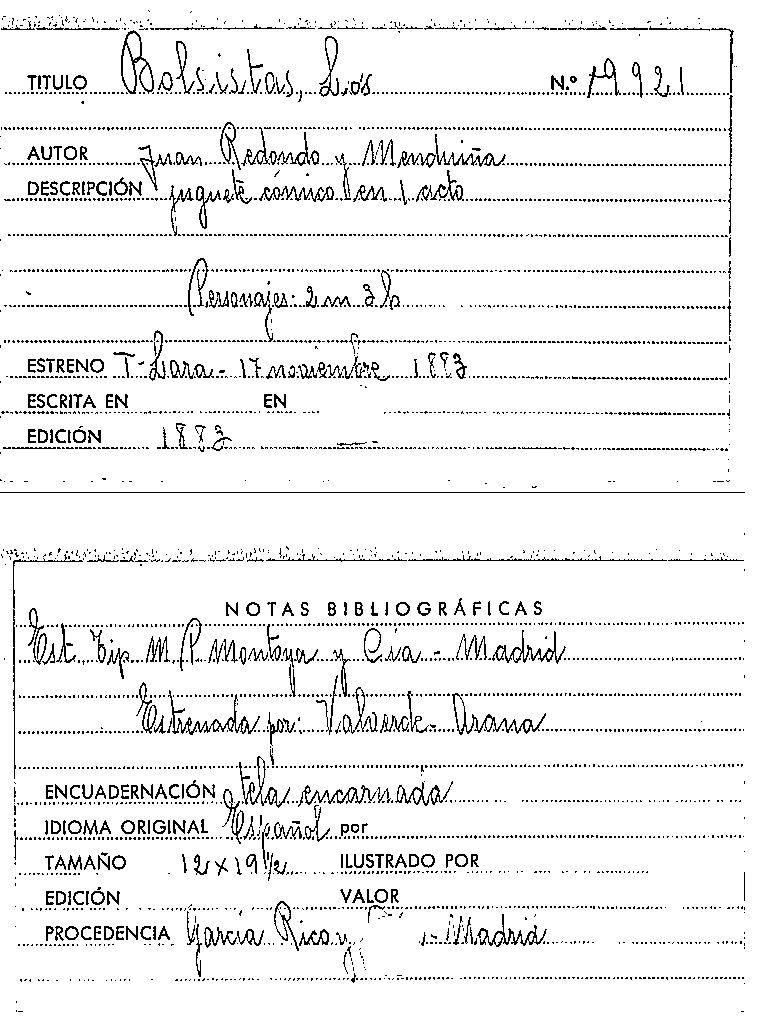 TITULO Bolsistas, Los N.º 19921
AUTOR Juan Redondo y Menduiña
DESCRIPCIÓN juguete cómico en 1 acto
Personajes: 2 m 3 h
ESTRENO T- Lara - 17 noviembre 1883
ESCRITA EN EN
EDICIÓN 1883
NOTAS BIBLIOGRÁFICAS
Est. Tip. M. P. Montoya y Cía - Madrid
Estrenada por: Valverde - Arana
ENCUADERNACIÓN tela encarnada
IDIOMA ORIGINAL Español por
TAMAÑO 12 x 19 1/2 ILUSTRADO POR
EDICIÓN VALOR
PROCEDENCIA García Rico y - Madrid